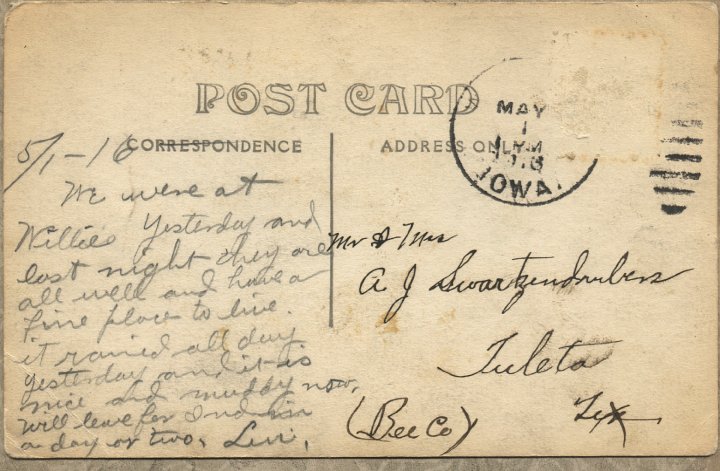 POST CARD
CORRESPONDENCE
ADDRESS ONLY
MAY
1
IOWA.
5/1-16
We were at
Willies Yesterday and
last night they are
all well and have a
fine place to live.
it rained all day
yesterday and it is
nice and muddy now,
will leave for Ind in
a day or two, Levi,
Mr & Mrs
A J Swartzendrubers
Tuleta
(Bee Co) Tex